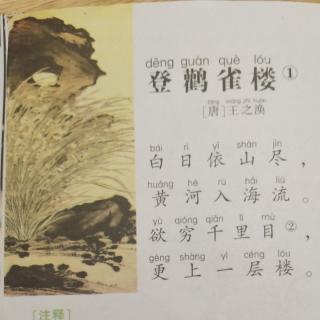 dēng guàn què lóu
登鹳雀楼①
táng wáng zhī huàn
[唐]王之涣
bái rì yī shān jìn
白日依山尽，
huáng hé rù hǎi liú
黄河入海流。
yù qióng qiān lǐ mù
欲穷千里目②，
gèng shàng yì céng lóu
更上一层楼。
[注释]